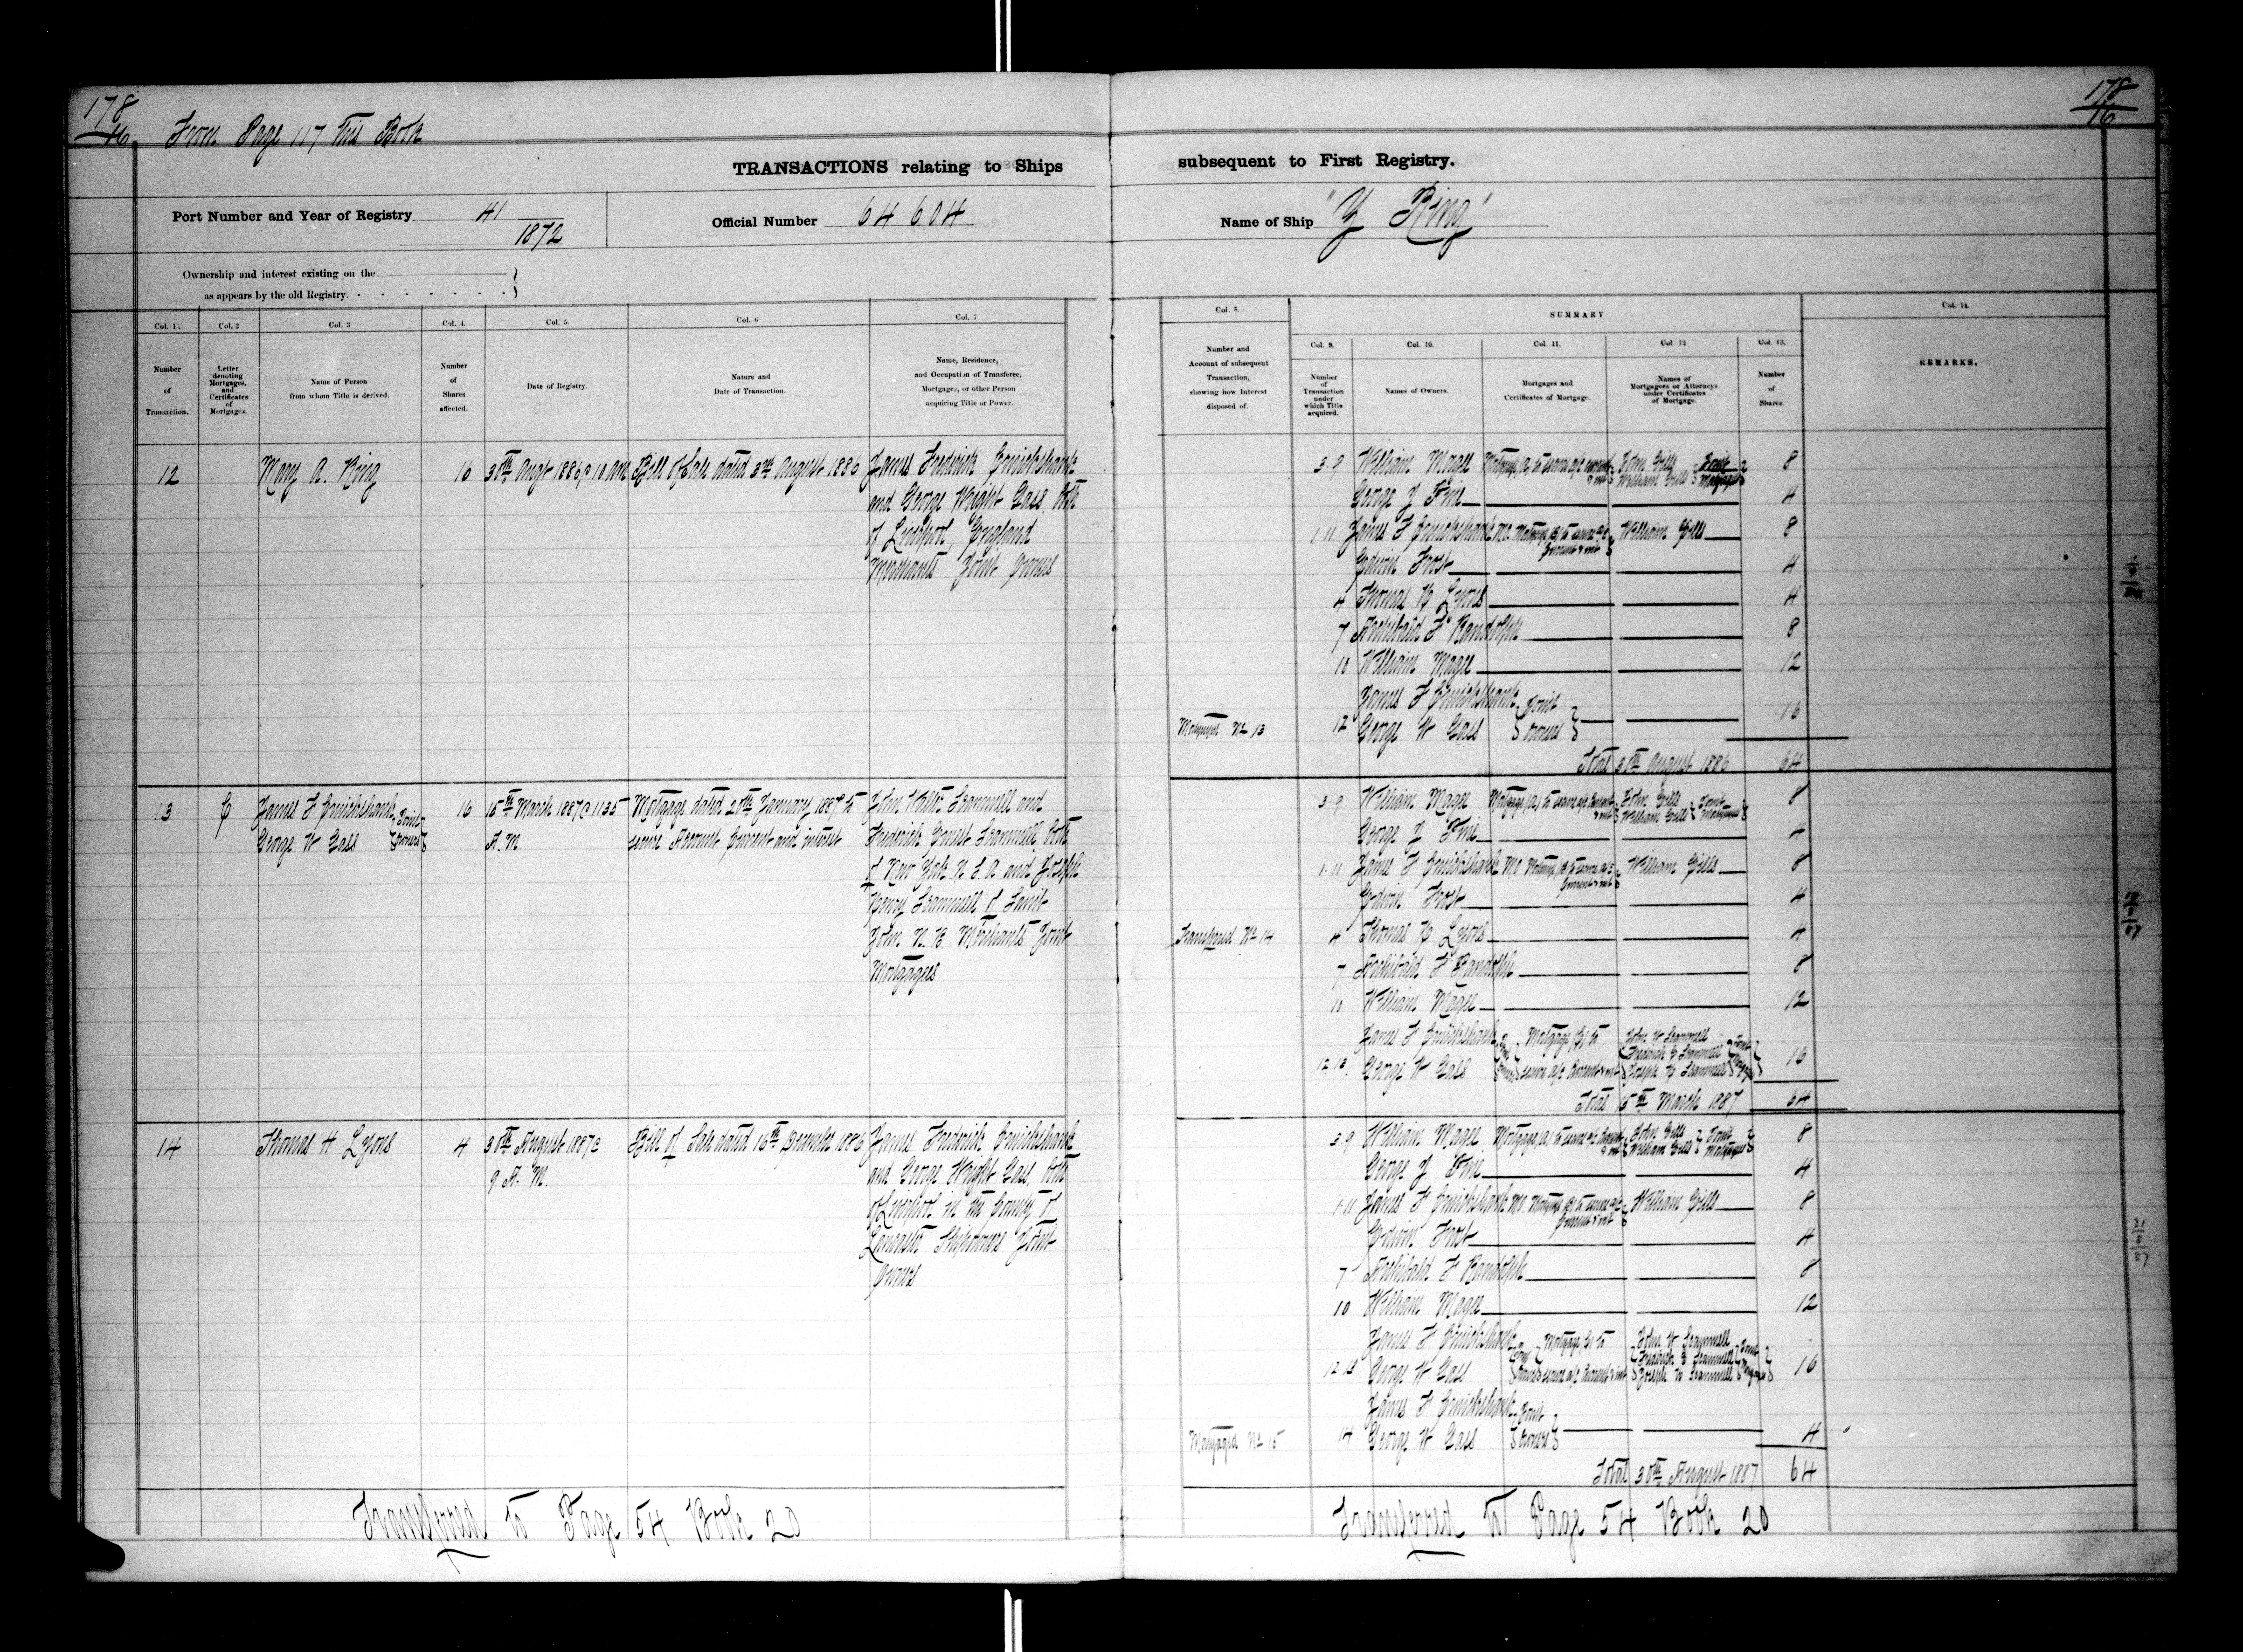 178
From Page 117 this Book
TRANSACTIONS relating to Ships
Port Number and Year of Registry 41
1872
Official Number 64 604
Ownership and interest existing on the
as appears by the old Registry.
Col. 1.
Col. 2
Col. 3
Col. 4.
Col. 5.
Col. 6
Col. 7
Number
of
Transaction.
Letter
denoting
Mortgages,
and
Certificates
of
Mortgages.
Name of Person
from whom Title is derived.
Number
of
Shares
affected.
Date of Registry.
Nature and
Date of Transaction.
Name, Residence,
and Occupation of Transferee,
Mortgagee, or other Person
acquiring Title or Power.
12 Mary A. Ring 16 30th Augt 1886 @ 10 AM Bill of Sale dated 3rd August 1886 James Frederick Cruickshank
and George Wright Gass both
of Liverpool, England
Merchants Joint Owners
13 C James F Cruickshank Joint 16 15th March 1887 @ 1135 Mortgage dated 20th January 1887 to John Walter Scammell and
George W Gass Owners A.M. secure Account Current and interest Frederick Ernest Scammell both
of New York U.S.A. and Joseph
Henry Scammell of Saint
John N.B. Merchants Joint
Mortgagees
14 Thomas H Lyons 4 30th August 1887 @ Bill of Sale dated 16th December 1886 James Frederick Cruickshank
9 A.M. and George Wright Gass both
of Liverpool in the County of
Lancaster Shipowners Joint
Owners
Transferred to Page 54 Book 20
178
16
subsequent to First Registry.
Name of Ship "Y Ring"
Col. 8.
SUMMARY
Col. 14.
Col. 9.
Col. 10.
Col. 11.
Col. 12
Col. 13.
Number and
Account of subsequent
Transaction,
showing how Interest
disposed of.
Number
of
Transaction
under
which Title
acquired.
Names of Owners.
Mortgages and
Certificates of Mortgage.
Names of
Mortgagees or Attorneys
under Certificates
of Mortgage.
Number
of
Shares.
REMARKS.
3.9 William Magee Mortgage (A) to secure a/c current John Gills Joint 8
& int William Gills Mortgagees
George Y Frie 4
1.11 James F Cruickshank Mo. Mortgage (B) to secure a/c William Gills 8
Current & int
Edwin Frost 4
4 Thomas H Lyons 4
7 Archibald F Randolph 8
10 William Magee 12
James F Cruickshank Joint 16
Mortgaged No 13 12 George W Gass Owners
Total 30th August 1886 64
3.9 William Magee Mortgage (A) to secure a/c Current John Gills Joint 8
& int William Gills Mortgagees
George Y Frie 4
1.11 James F Cruickshank Mo Mortgage (B) to secure a/c William Gills 8
Current & int
Edwin Frost 4
Transferred No 14 4 Thomas H Lyons 4
7 Archibald F Randolph 8
10 William Magee 12
James F Cruickshank Joint Mortgage (C) to John W Scammell Joint
12 13 George W Gass Owners secure a/c Current & int Frederick E Scammell Mortgagees 16
Joseph H Scammell
Total 15th March 1887 64
3.9 William Magee Mortgage (A) to secure a/c Current John Gills Joint 8
& int William Gills Mortgagees
George Y Frie 4
1.11 James F Cruickshank Mo. Mortgage (B) to secure a/c William Gills 8
Current & int
Edwin Frost 4
7 Archibald F Randolph 8
10 William Magee 12
James F Cruickshank Joint Mortgage (C) to John W Scammell Joint
12 13 George W Gass Owners secure a/c Current & int Frederick E Scammell Mortgagees 16
Joseph H Scammell
James F Cruickshank Joint
Mortgaged No 15 14 George W Gass Owners 4
Total 30th August 1887 64
Transferred to Page 54 Book 20
31
8
87